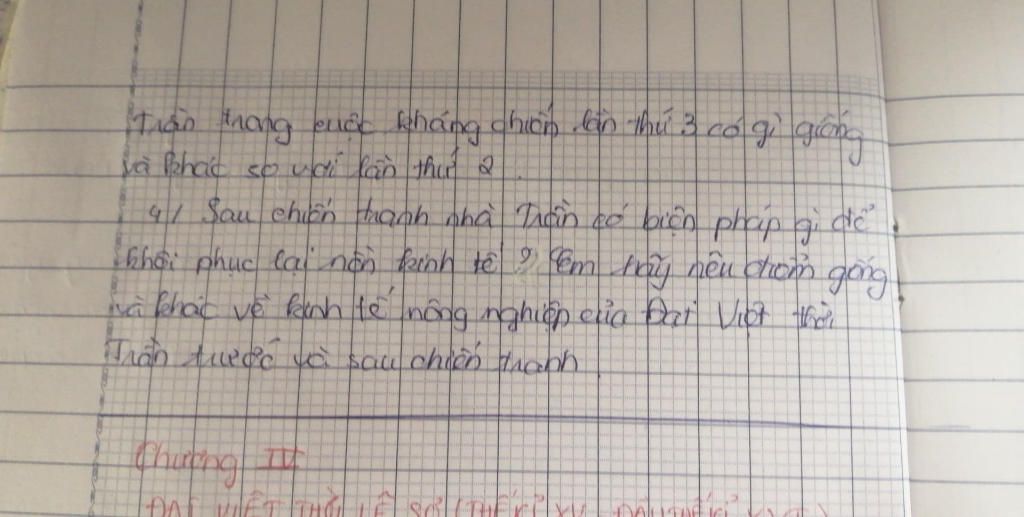 Trần trong cuộc kháng chiến lần thứ 3 có gì giống
và khác so với lần thứ 2.
4/ Sau chiến tranh nhà Trần có biện pháp gì để
khôi phục lại nền kinh tế? Em hãy nêu điểm giống
và khác về kinh tế nông nghiệp của Đại Việt thời
Trần trước và sau chiến tranh.
Chương IV
ĐẠI VIỆT THỜI LÊ SƠ (THẾ KỈ XV - ĐẦU THẾ KỈ XVI)